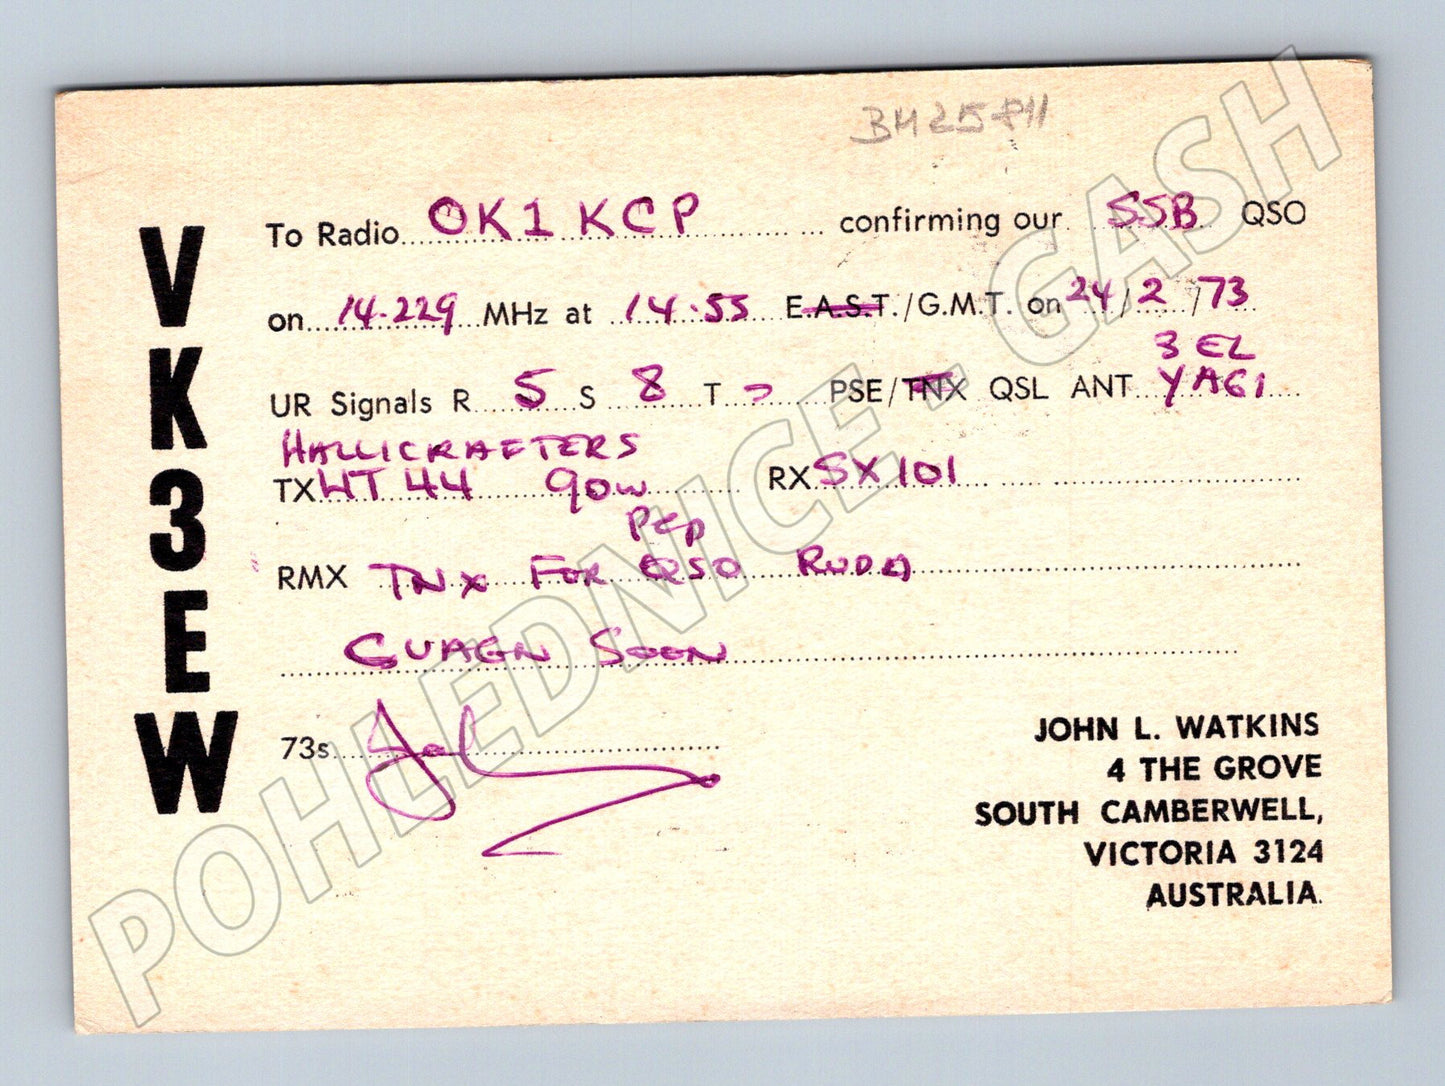 BH25PH
VK3EW
To Radio OK1KCP confirming our SSB QSO
on 14.229 MHz at 14.55 E.A.S.T./G.M.T. on 24/2/73
3 EL
UR Signals R 5 S 8 T - PSE/TNX QSL ANT YAGI
HALLICRAFTERS
TX HT 44 90W RX SX 101
PEP
RMX TNX FOR QSO RUDA
CUAGN SOON
73s John
JOHN L. WATKINS
4 THE GROVE
SOUTH CAMBERWELL,
VICTORIA 3124
AUSTRALIA.
POHLEDNICE - GASH